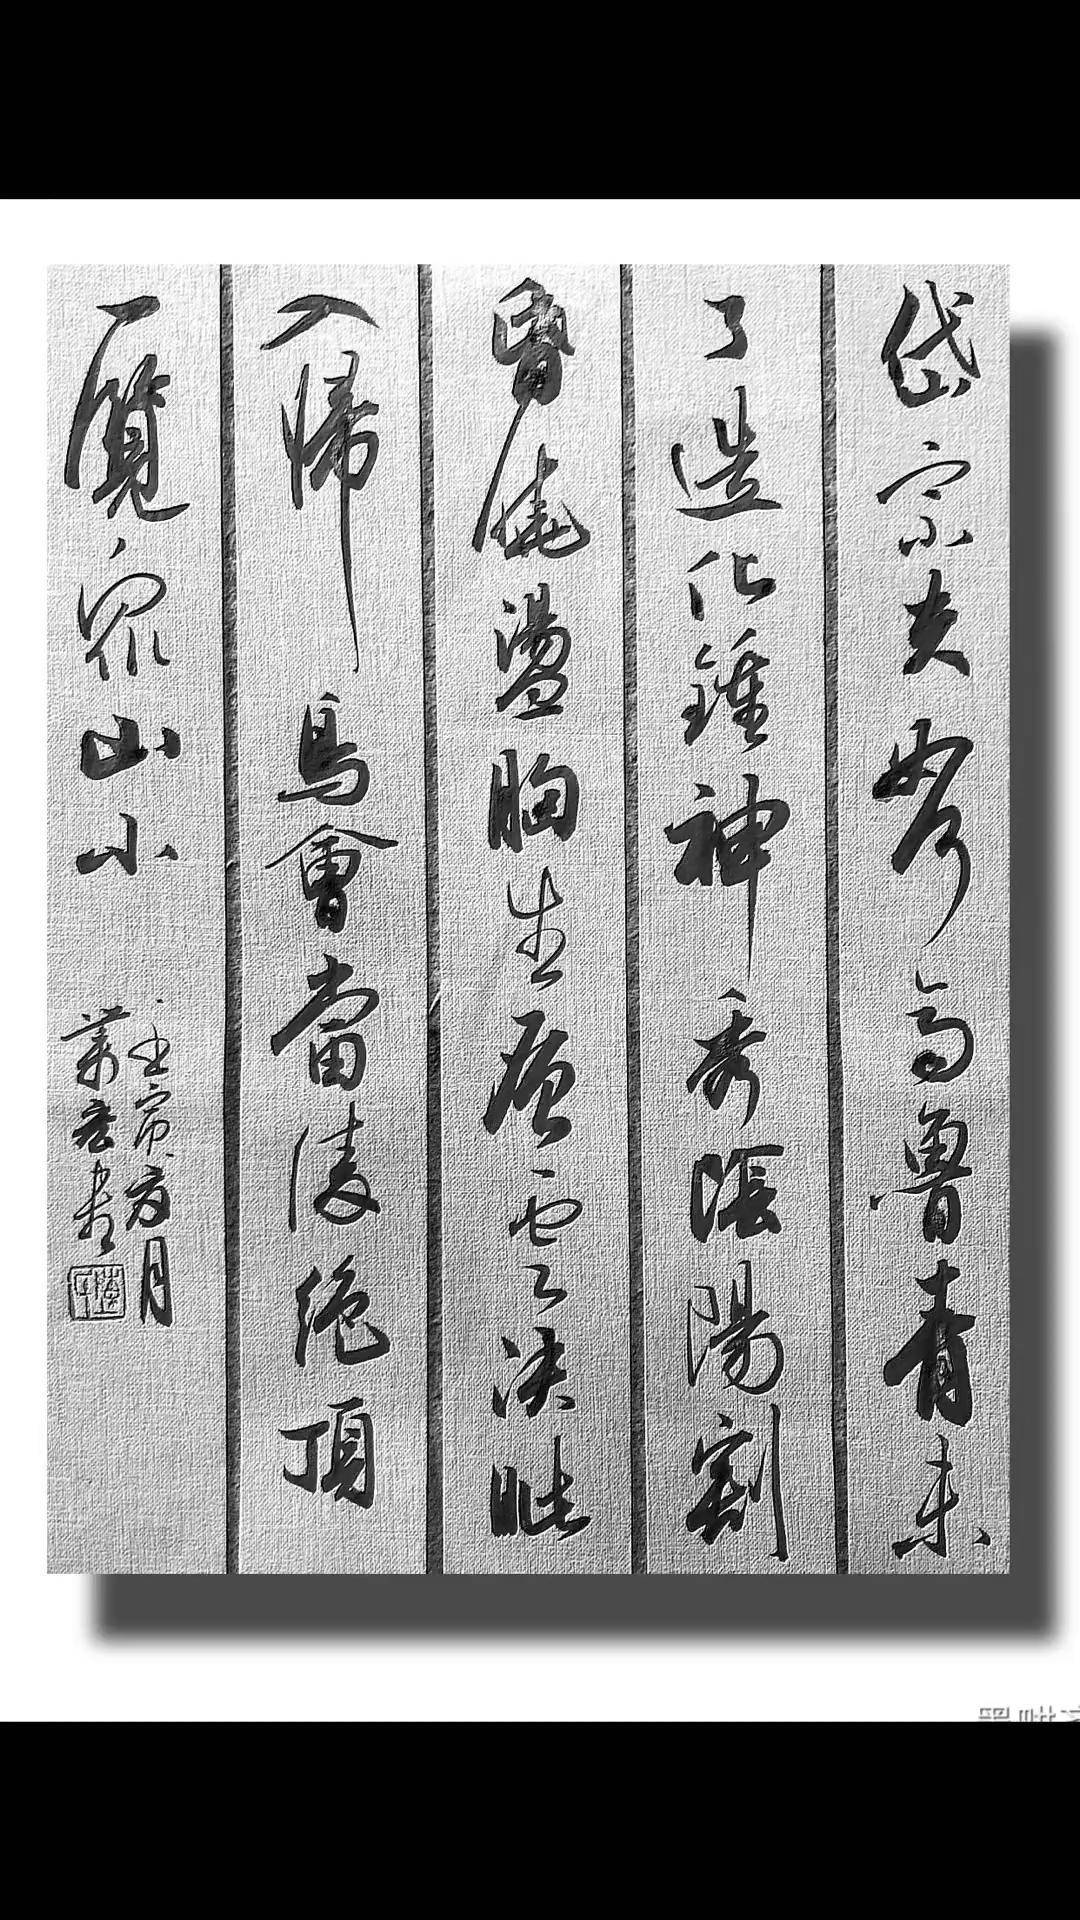 岱宗夫如何齊魯青未
了造化鍾神秀陰陽割
昏曉盪胸生層雲決眦
入歸鳥會當凌絕頂
一覽眾山小
壬寅 月
書